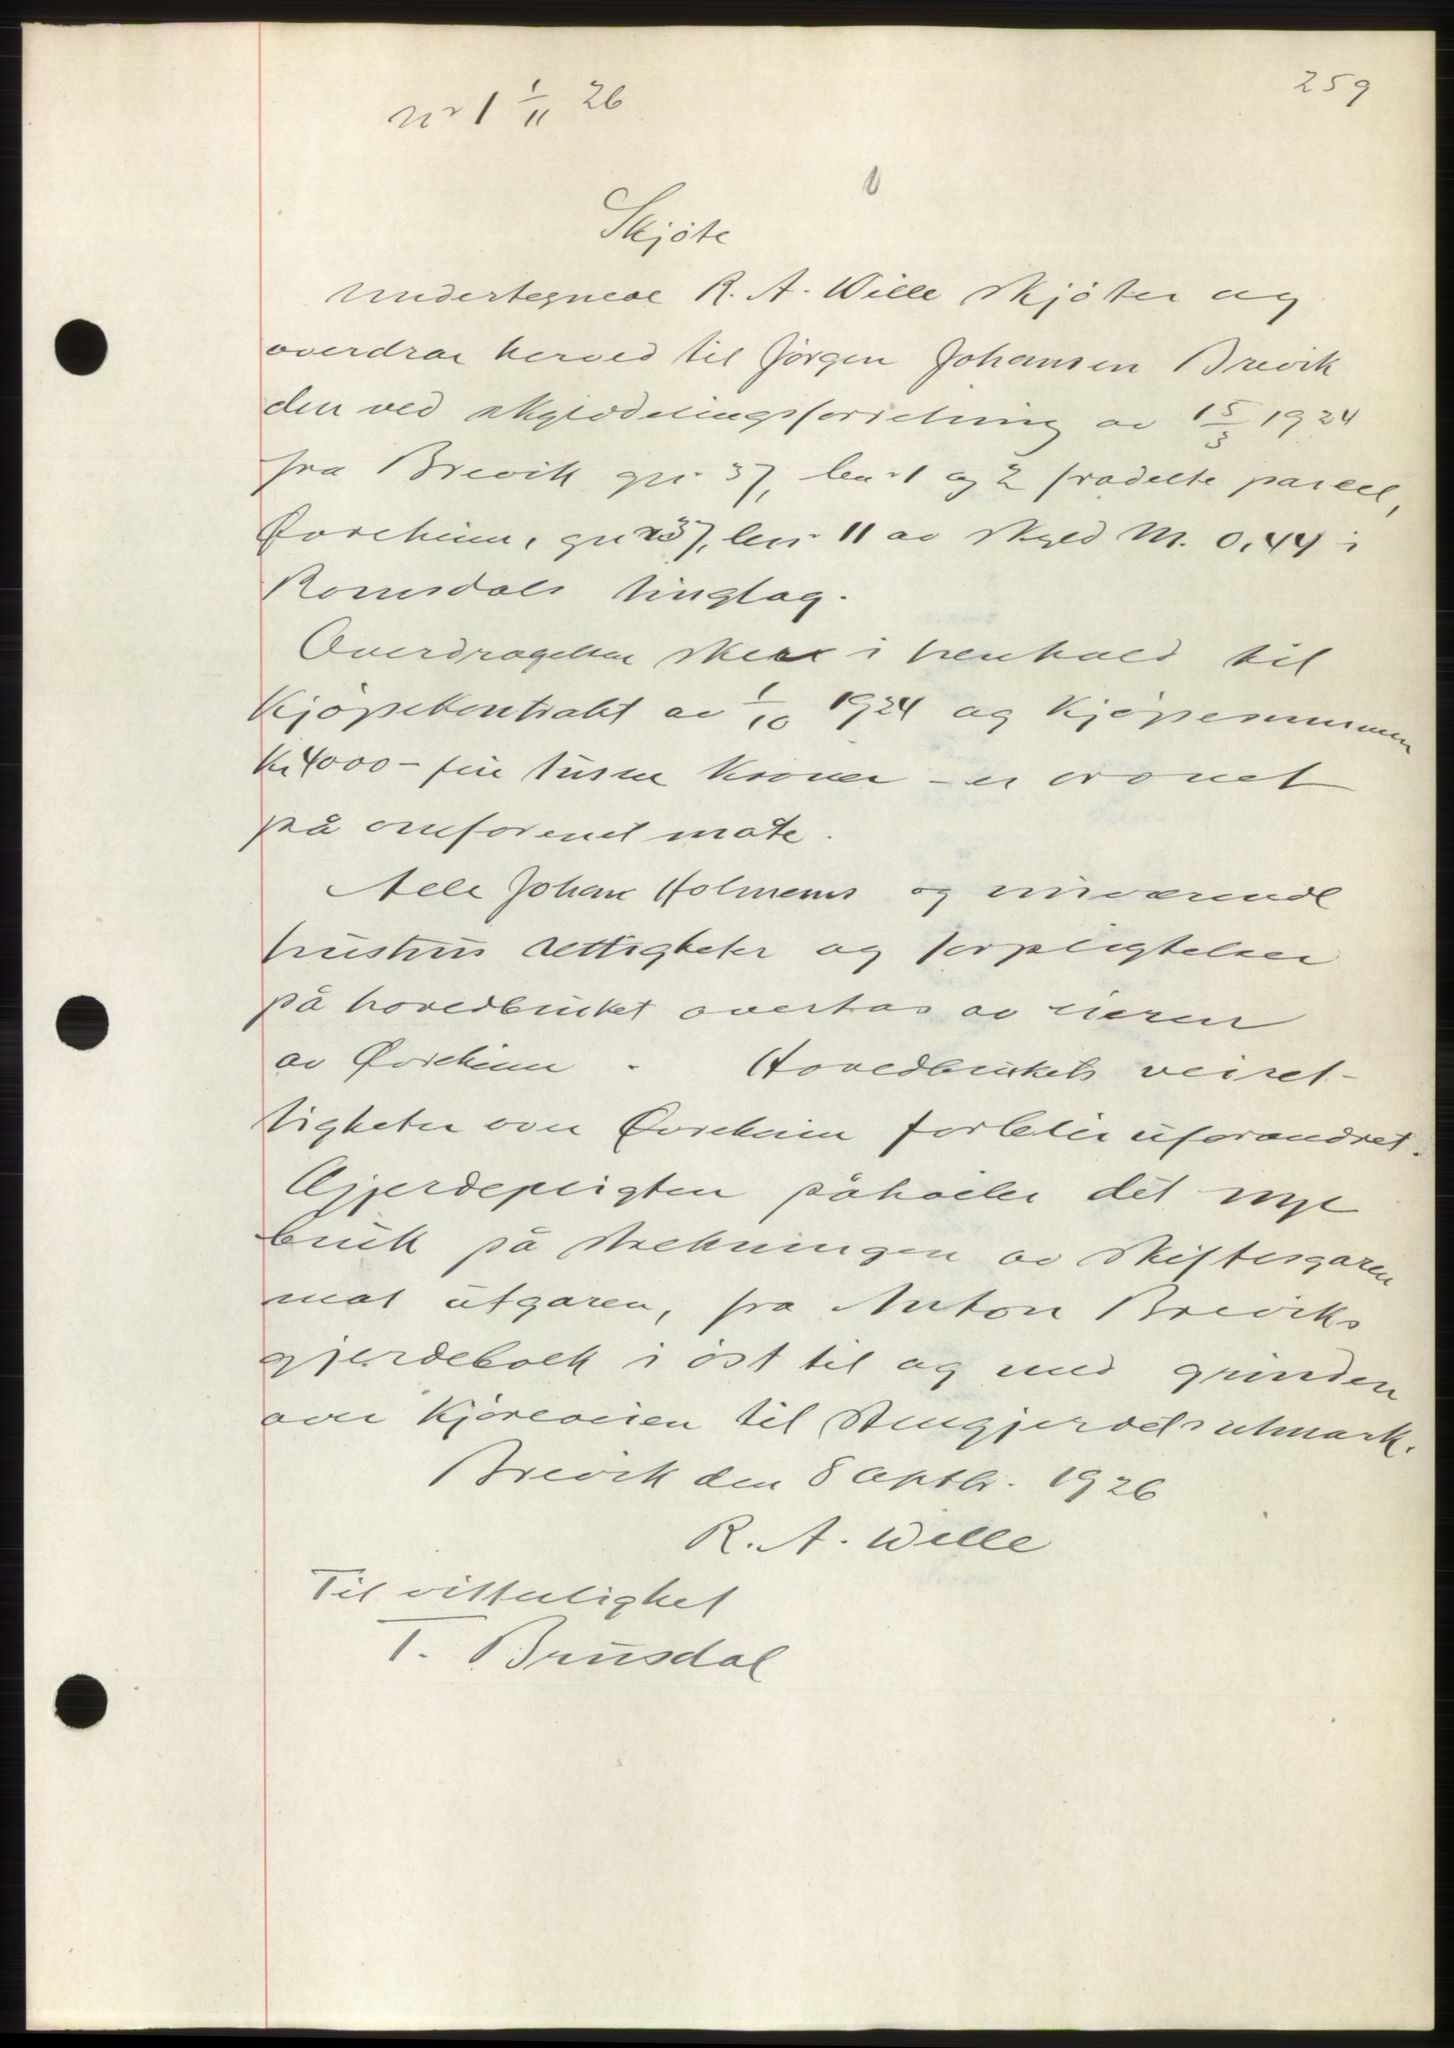 259
Nr 1 1/11 26
Skjøte
Undertegnede R. A. Wille skjøter og
overdrar herved til Jørgen Johansen Brevik
den ved skylddelingsforretning av 15/3 1924
fra Brevik gnr 37, bnr 1 og 2 fradelte parcel,
Øvreheim, gnr 37, bnr 11 av skyld M. 0,44 i
Romsdals tinglag.
Overdragelsen sker i henhold til
kjøpekontrakt av 1/10 1924 og kjøpesummen
Kr 4000 – fire tusen kroner – er ordnet
på omforenet måte.
Alle Johan Holmems og nuværende
hustrus rettigheter og forpligtelser
på hovedbruket overtas av eieren
av Øvreheim. Hovedbrukets veiret-
tigheter over Øvreheim forblir uforandret.
Gjerdepligten påhviler det nye
bruk på strekningen av skiftesgaren
mot utgaren, fra Anton Breviks
gjerdebolk i øst til og med grinden
over kjøreveien til Stengjerdets utmark.
Brevik den 8 1926
R. A. Wille
Til vitterlighet
T. Brusdal